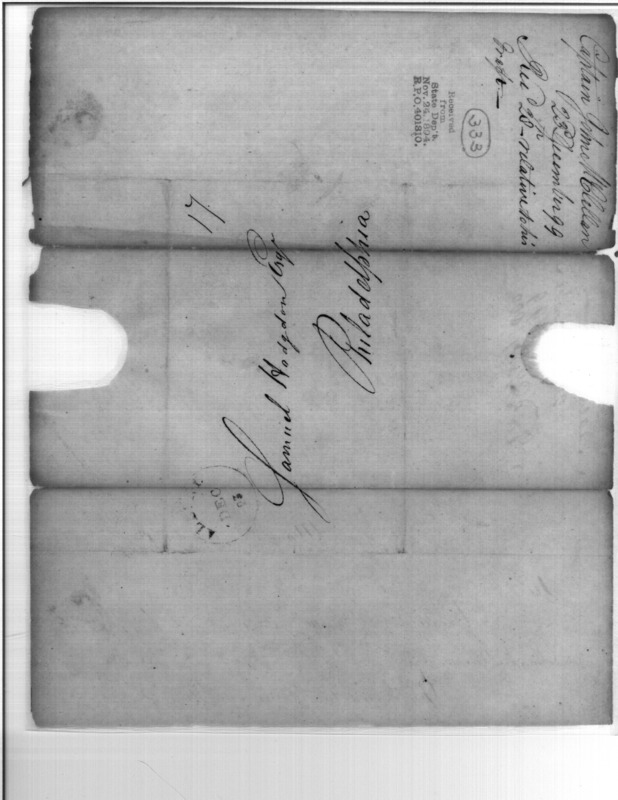 Captain John McClellan
23d December 99
Rec'd 28th relative to his
drafts—
333
Received
from
State Dep't.
Nov. 24, 1894.
R.P.O. 401810.
17
Samuel Hodgdon Esqr
Philadelphia
DEC